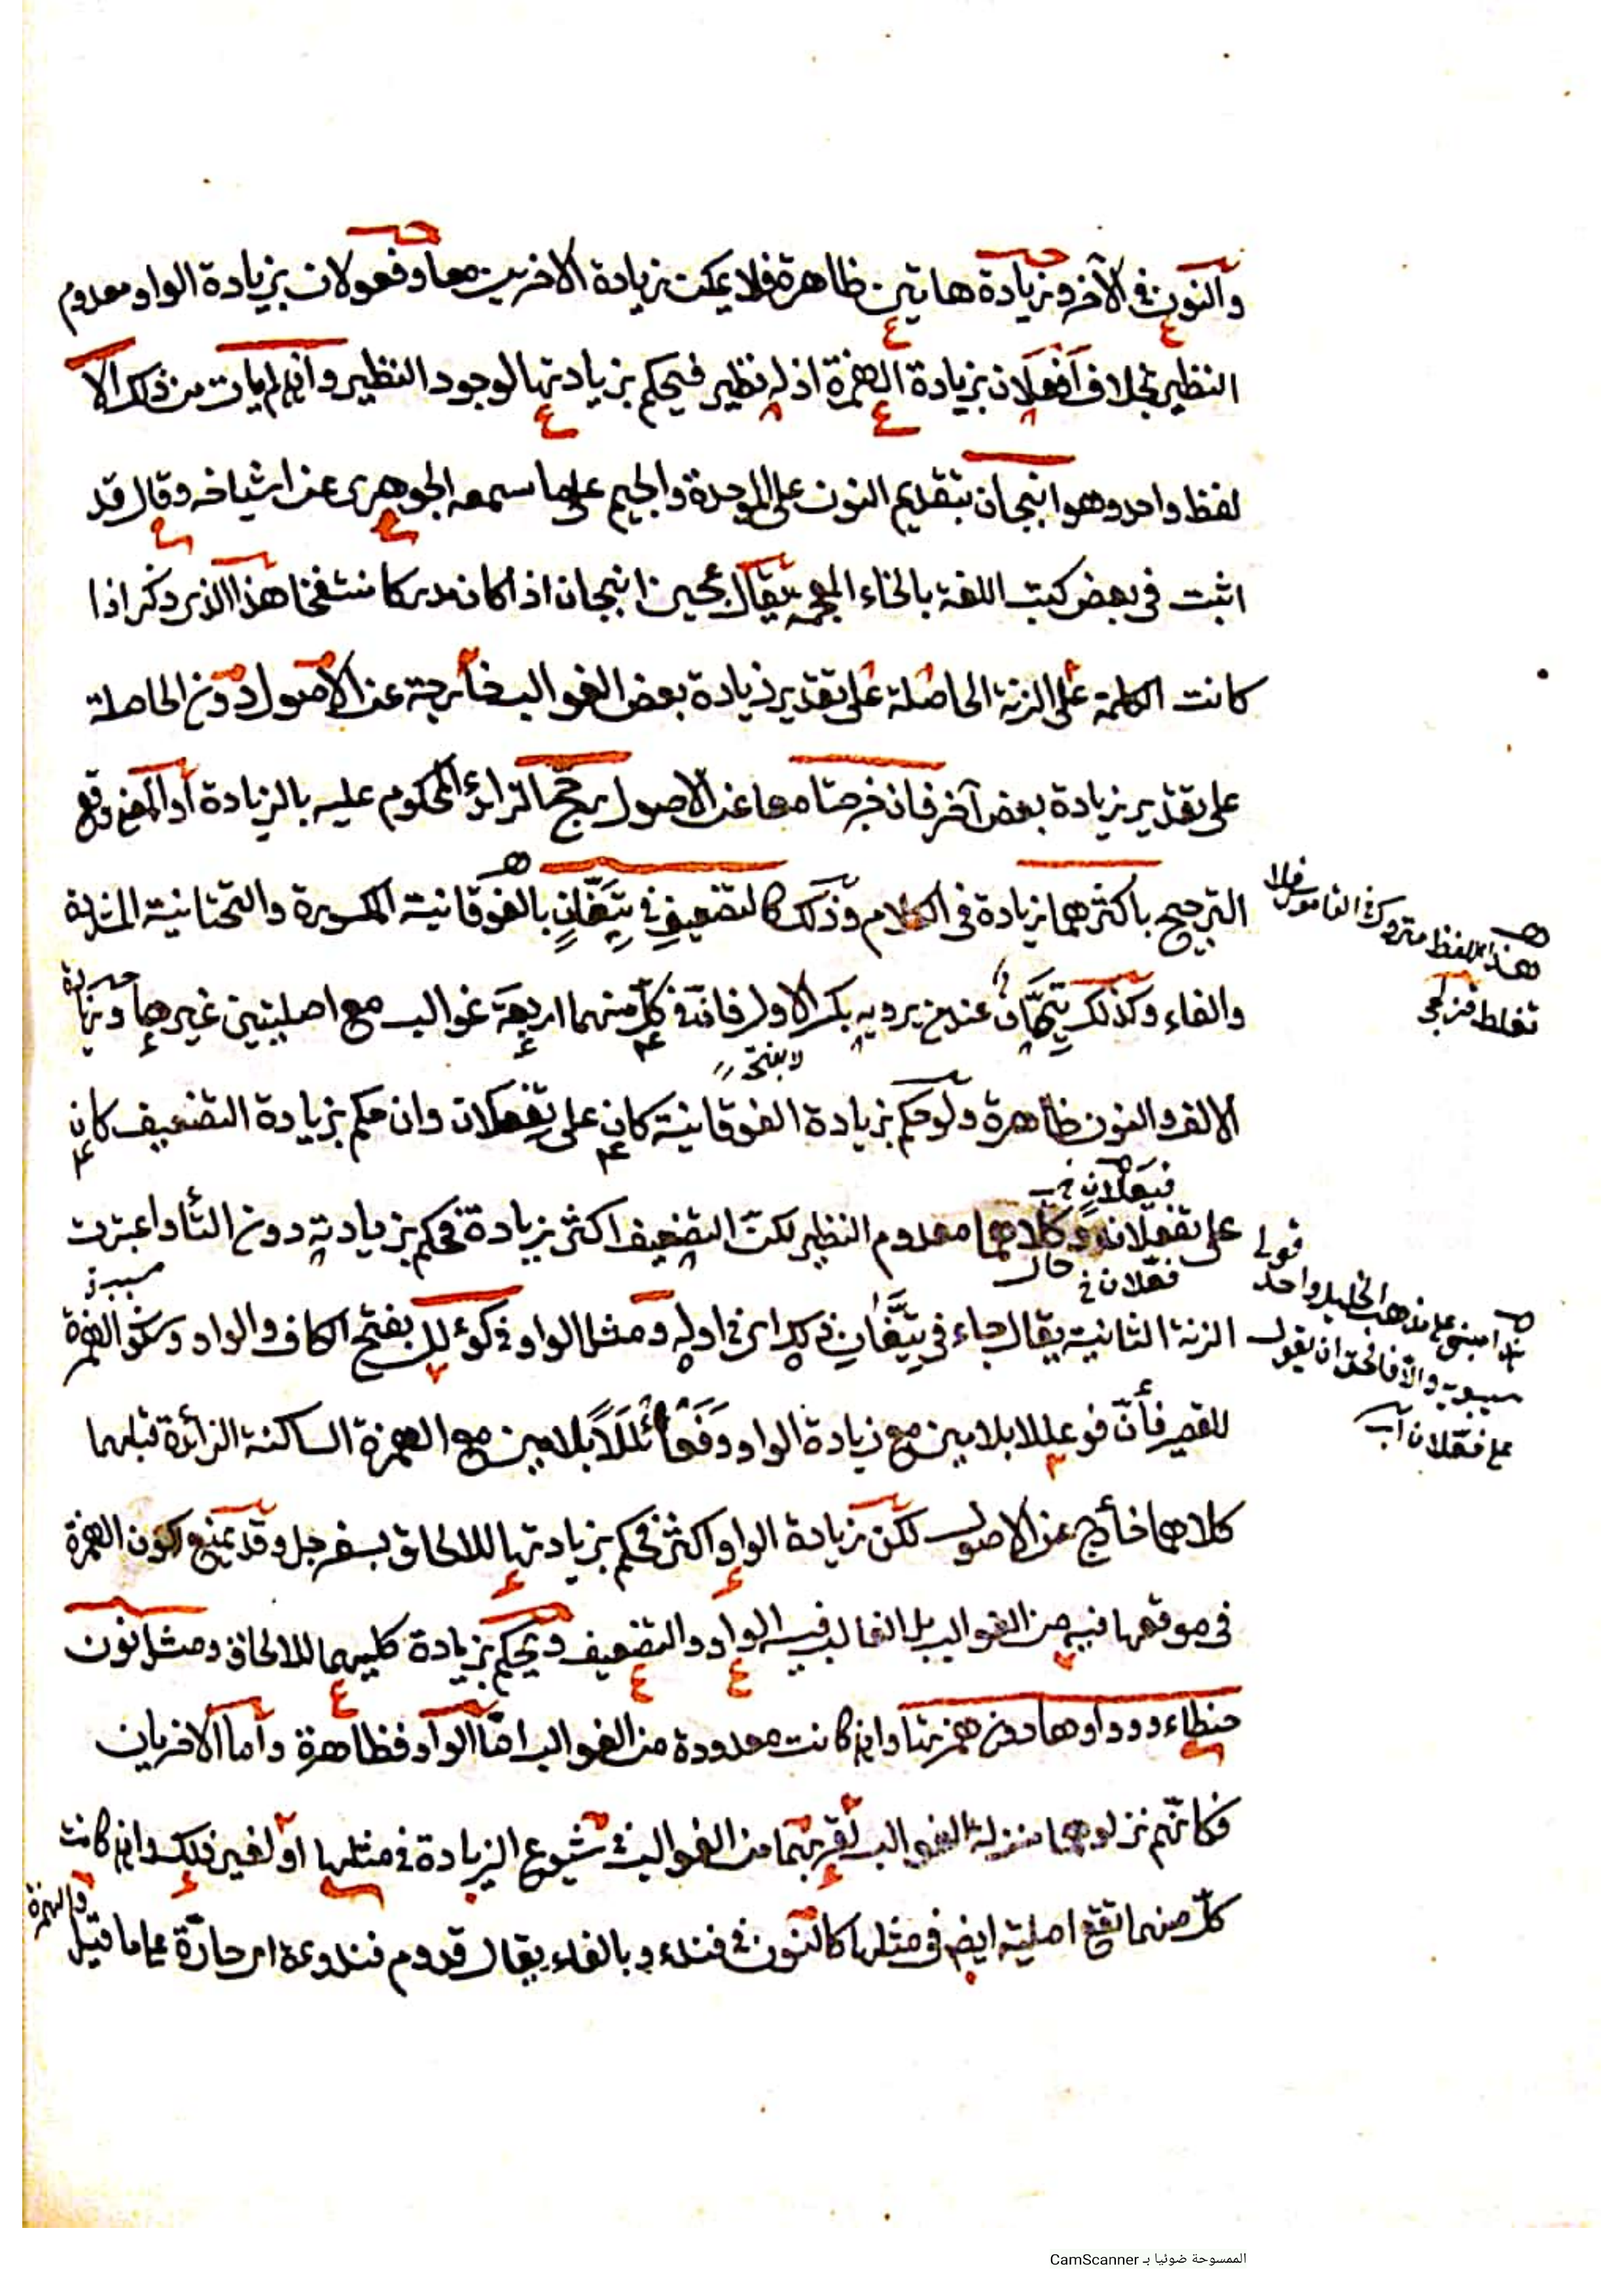 والنون في الآخر وزيادة هاتين ظاهرة فلا يمكن زيادة الاخريين معا وفعولان بزيادة الواو معدوم
النظير بخلاف أفعلان بزيادة الهمزة اذ له نظير فيحكم بزيادتها لوجود النظير وان لم يات من ذلك الا
لفظ واحد وهو انبجان بتقديم النون على الموحدة والجيم على ما سمعه الجوهرى عن اشياخه وقال قد
اثبت في بعض كتب اللغة بالخاء المعجمة يقال عجين انبجان اذا كان مدركا منتفخا هذا الذي ذكر اذا
كانت الكلمة على الزنة الحاصلة على تقدير زيادة بعض الغوالب خارجة عن الاصول دون الحاصلة
على تقدير زيادة بعض آخر فان خرجتا معا عن الاصول رجح الزائد المحكوم عليه بالزيادة أو وقع
الترجيح باكثرهما زيادة في الكلام وذلك كالتضعيف في تِئِفّانٍ بالفوقانية المكسورة والتحتانية المشددة
والفاء وكذلك تِيّهان عند من يرويه بكسر الاول فانّ في كلّ منهما اربعة غوالب مع اصليتين غيرها وزيادة
الالف والنون ظاهرة ولو حكم بزيادة الفوقانية كان على تفعلان وان حكم بزيادة التضعيف كان
فيعلان
على تفعلان وكلاهما معدوم النظير لكنّ التضعيف اكثر زيادة فحكم بزيادته دون التاء واعتبرت
فعلان
الزنة الثانية يقال جاء في تئفّان ذلك اى في اوله ومثل الواو في كوءلل بفتح الكاف والواو وسكون الهمزة
للقصير فأنّ فوعللا بلامين مع زيادة الواو وفَعَأْلَلاً بلامين مع الهمزة الساكنة الزائدة قبلهما
كلاهما خارج عن الاصول لكن زيادة الواو اكثر فحكم بزيادتها للالحاق بسفرجل وقد يمنع كون الهمزة
في موقعها فيه من الغوالب بل الغالب فيه الواو والتضعيف ويحكم بزيادة كليهما للالحاق ومثل نون
حنطاءو وواوها دون همزتها وان كانت معدودة من الغوالب امّا الواو فظاهرة وأما الاخريان
فكانّهم نزلوهما منزلة الغوالب لقربهما من الغوالب في شيوع الزيادة في مثلها او لغير ذلك وان كانت
كلّ منهما تقع اصلية ايض في مثلها كالنون في فنداءو بالفاء يقال قدوم فنداوة اى حادّة على ما قيل
والهمزة
هذا اللفظ متروك في القاموس فلا
تغلط
قولى
هذا مبنى على مذهب الخليل واحد
سيبويه والا فالحق ان يقول
على فعّلان
الممسوحة ضوئيا بـ CamScanner